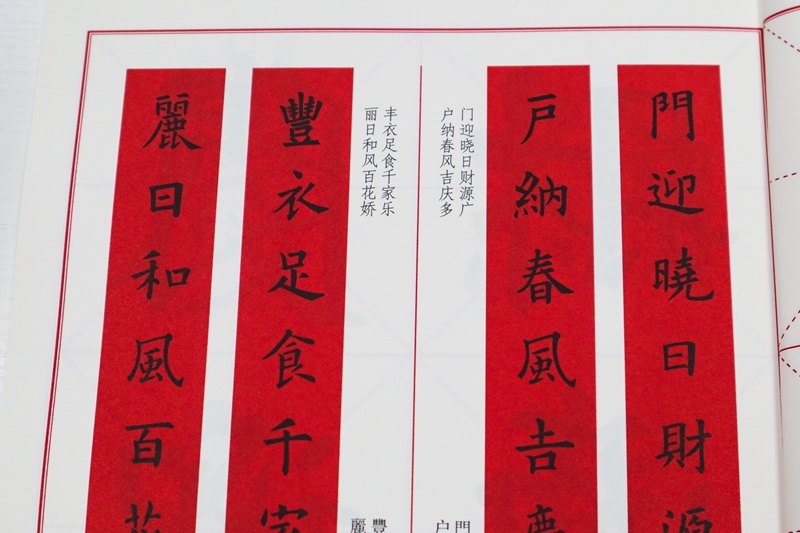 門迎曉日財源
戸納春風吉慶
门迎晓日财源广
户纳春风吉庆多
門
户
丰衣足食千家乐
丽日和风百花娇
豐
麗
豐衣足食千家
麗日和風百花